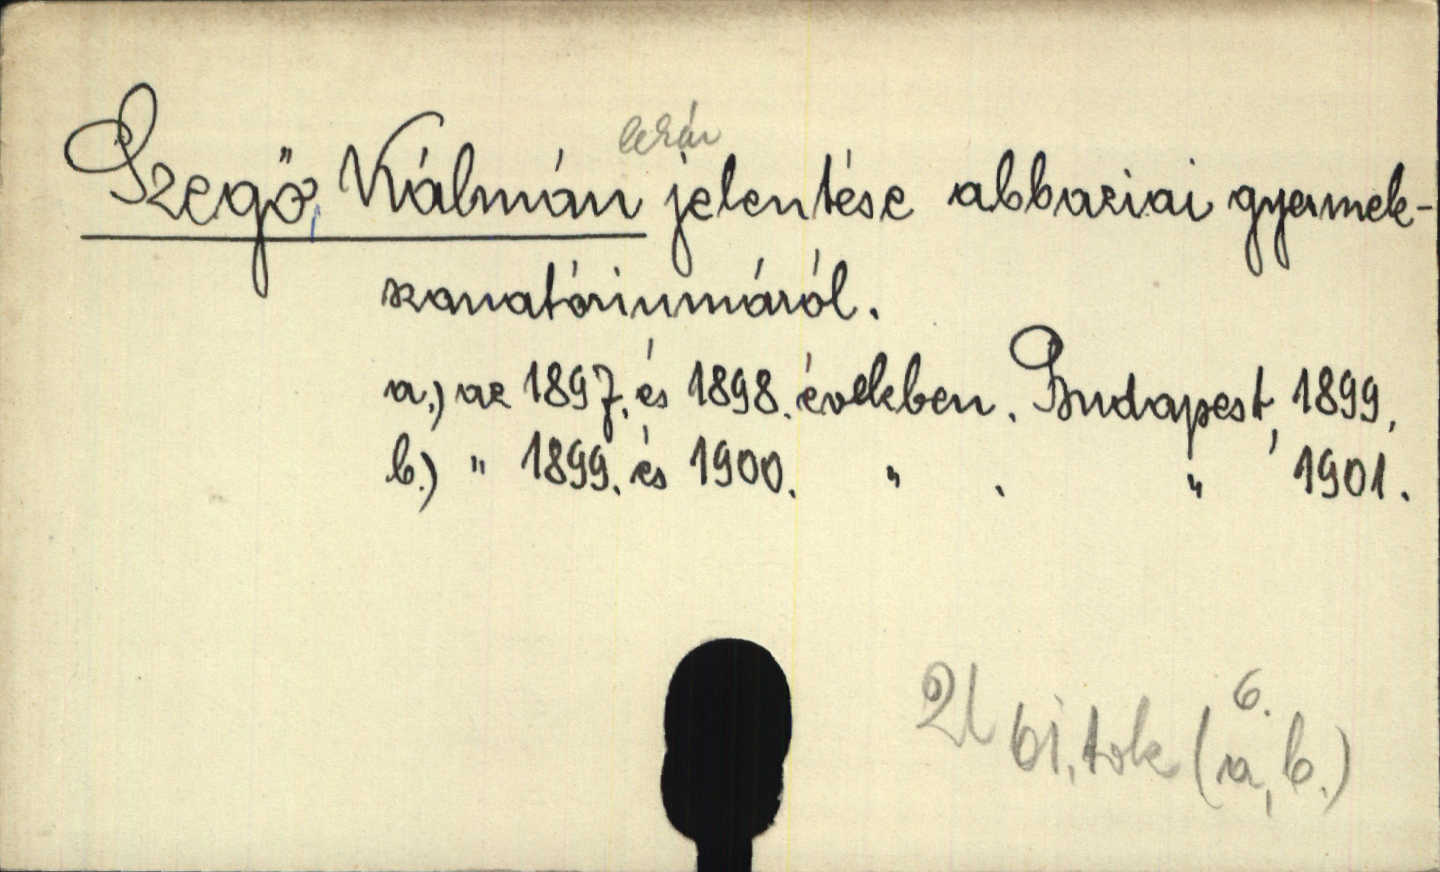 Szegő, Kálmán jelentése abbaziai gyermek-
szanatóriumáról.
a.) az 1897. és 1898. években. Budapest, 1899.
b.) " 1899. és 1900. " . " 1901.
6.
U 61. tok (a, b.)